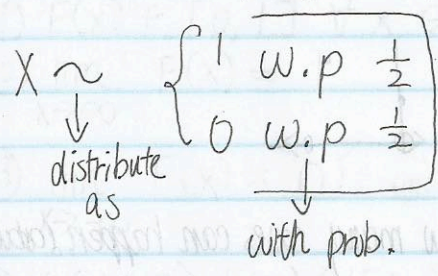 X ~ { 1 w.p 1/2
0 w.p 1/2
distribute
as
with prob.